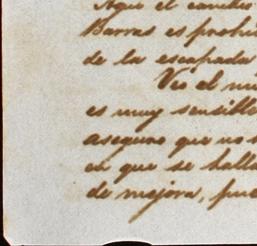 Aqui el cambio
Barras es prohi
de la escapada
Veo el mu
es muy sensible
asegura que no s
en que se halla
de mejora, pue